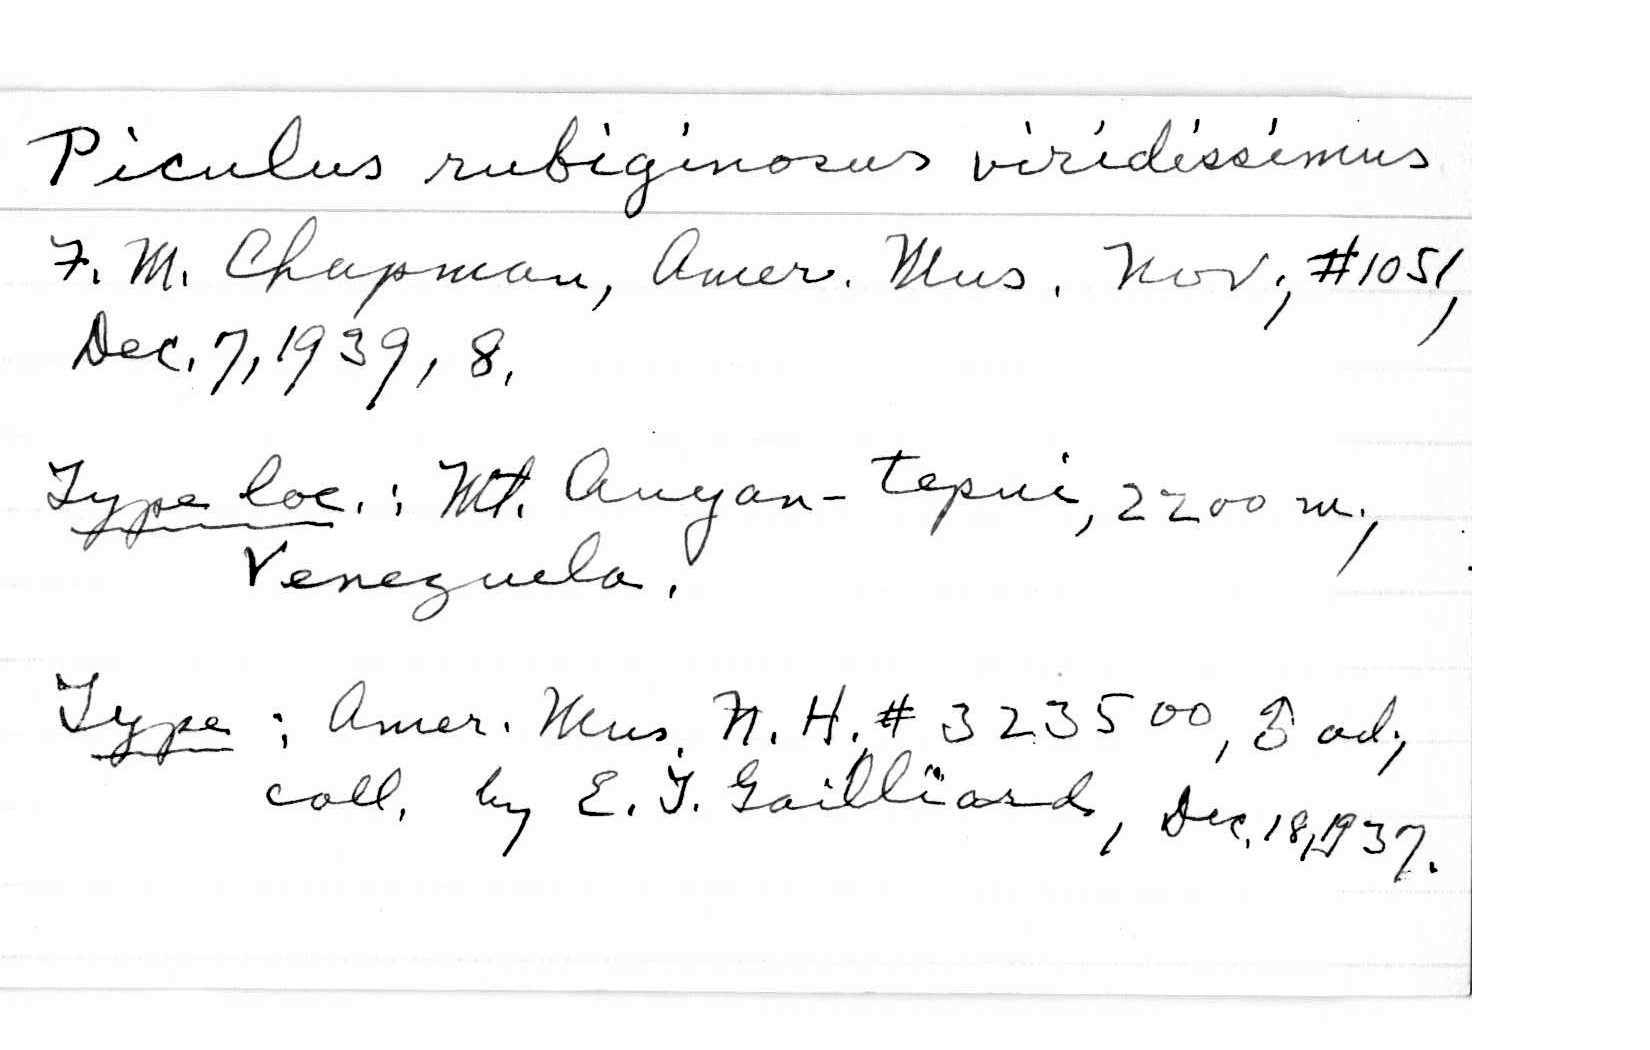 Piculus rubiginosus viridissimus
F. M. Chapman, Amer. Mus. Nov., #1051,
Dec. 7, 1939, 8.
Type loc.: Mt. Auyan-tepui, 2200 m.,
Venezuela.
Type: Amer. Mus. N. H. # 323500, ♂ ad.,
coll. by E. T. Gailliard, Dec. 18, 1937.